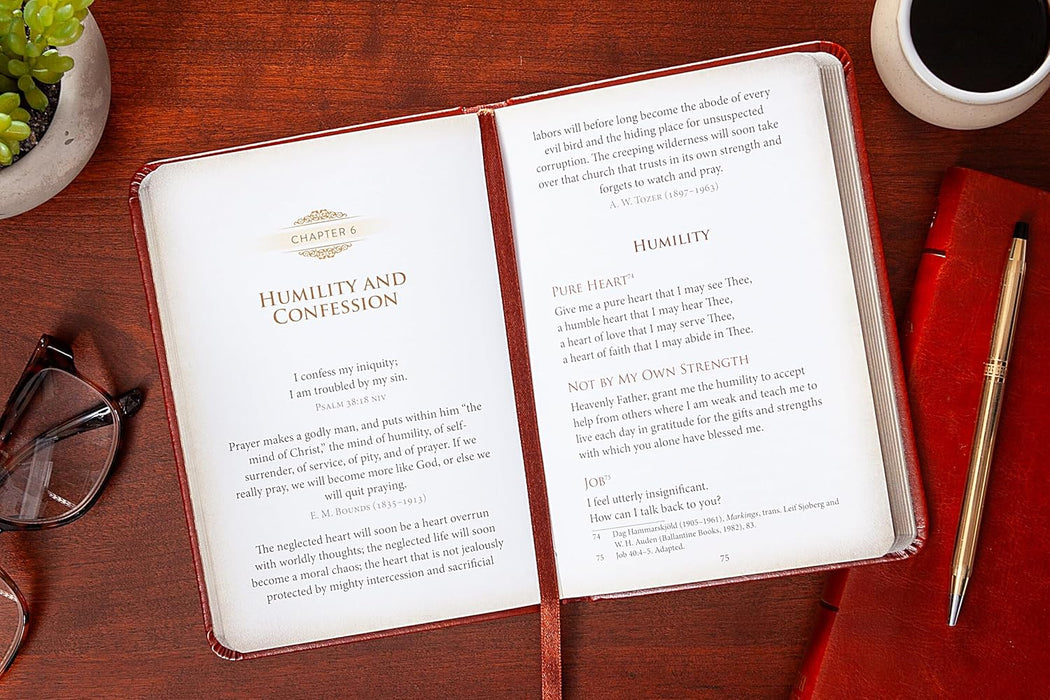 CHAPTER 6
HUMILITY AND
CONFESSION
I confess my iniquity;
I am troubled by my sin.
PSALM 38:18 NIV
Prayer makes a godly man, and puts within him “the
mind of Christ,” the mind of humility, of self-
surrender, of service, of pity, and of prayer. If we
really pray, we will become more like God, or else we
will quit praying.
E. M. BOUNDS (1835–1913)
The neglected heart will soon be a heart overrun
with worldly thoughts; the neglected life will soon
become a moral chaos; the heart that is not jealously
protected by mighty intercession and sacrificial
labors will before long become the abode of every
evil bird and the hiding place for unsuspected
corruption. The creeping wilderness will soon take
over that church that trusts in its own strength and
forgets to watch and pray.
A. W. TOZER (1897–1963)
HUMILITY
PURE HEART74
Give me a pure heart that I may see Thee,
a humble heart that I may hear Thee,
a heart of love that I may serve Thee,
a heart of faith that I may abide in Thee.
NOT BY MY OWN STRENGTH
Heavenly Father, grant me the humility to accept
help from others where I am weak and teach me to
live each day in gratitude for the gifts and strengths
with which you alone have blessed me.
JOB75
I feel utterly insignificant.
How can I talk back to you?
74 Dag Hammarskjöld (1905–1961). Markings, trans. Leif Sjoberg and
W. H. Auden (Ballantine Books, 1982), 83.
75 Job 40:4–5. Adapted.
75